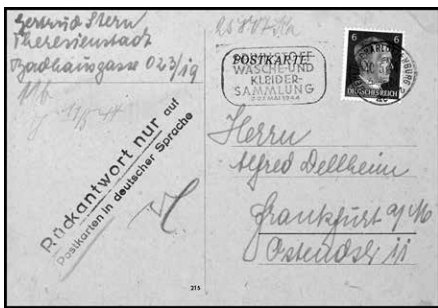 Gertrud Stern
Theresienstadt
Badhausgasse 023/19
Rückantwort nur auf
Postkarten in deutscher Sprache
POSTKARTE
SPINNSTOFF
WÄSCHE-UND
KLEIDER-
SAMMLUNG
MAI 1944
6 6
DEUTSCHES REICH
Herrn
Alfred Dellheim
Frankfurt a/M
Ostendstr 11
215